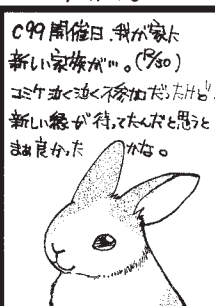 C99開催日、我が家に
新しい家族が…。(12/30)
コミケ泣く泣く不参加だったけど、
新しい縁が待ってたんだと思うと
まあ良かったかな。